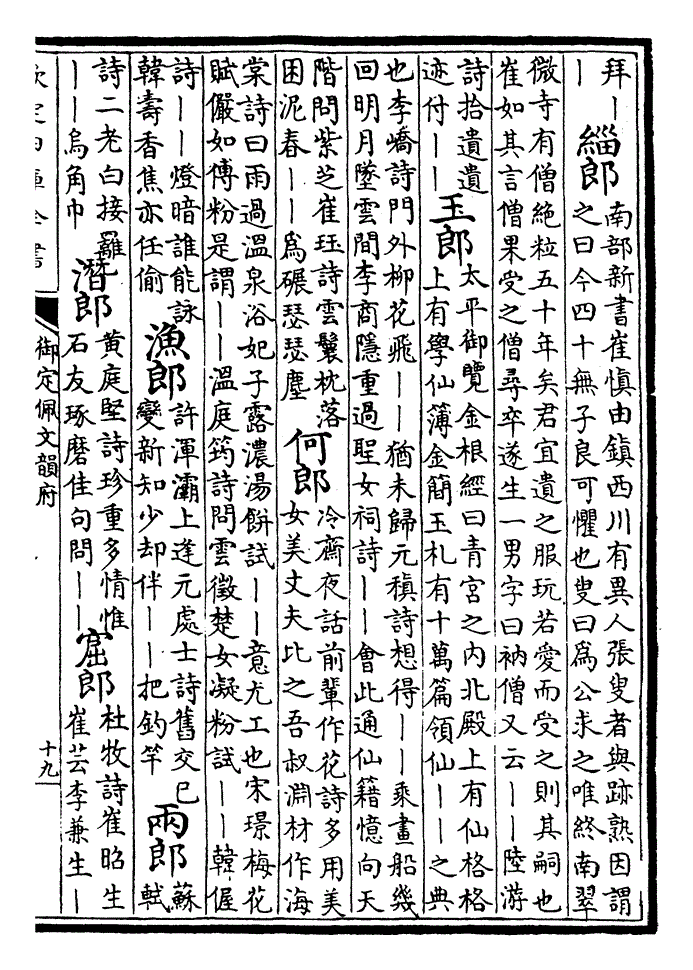 拜｜
｜
緇郎
南部新書崔慎由鎮西川有異人張叟者與跡熟因謂
之曰今四十無子良可懼也叟曰爲公求之唯終南翠
微寺有僧絕粒五十年矣君宜遺之服玩若愛而受之則其嗣也
崔如其言僧果受之僧尋卒遂生一男字曰衲僧又云｜｜陸游
詩拾遺遺
迹付｜｜
玉郎
太平御覽金根經曰青宮之內北殿上有仙格格
上有學仙簿金簡玉札有十萬篇領仙｜｜之典
也李嶠詩門外柳花飛｜｜猶未歸元稹詩想得｜｜乘畫船幾
回明月墜雲間李商隱重過聖女祠詩｜｜會此通仙籍憶向天
階問紫芝崔珏詩雲鬟枕落
困泥春｜｜爲碾瑟瑟塵
何郎
冷齋夜話前輩作花詩多用美
女美丈夫比之吾叔淵材作海
棠詩曰雨過溫泉浴妃子露濃湯餅試｜｜意尤工也宋璟梅花
賦儼如傅粉是謂｜｜溫庭筠詩問雲徵楚女凝粉試｜｜韓偓
詩｜｜燈暗誰能詠
韓壽香焦亦任偷
漁郎
許渾灞上逢元處士詩舊交已
變新知少却伴｜｜把釣竿
兩郎
蘇
軾
詩二老白接䍦
｜｜烏角巾
潛郎
黄庭堅詩珍重多情惟
石友琢磨佳句問｜｜
窟郎
杜牧詩崔昭生
崔芸李兼生｜
欽定四庫全書
御定佩文韻府
十九